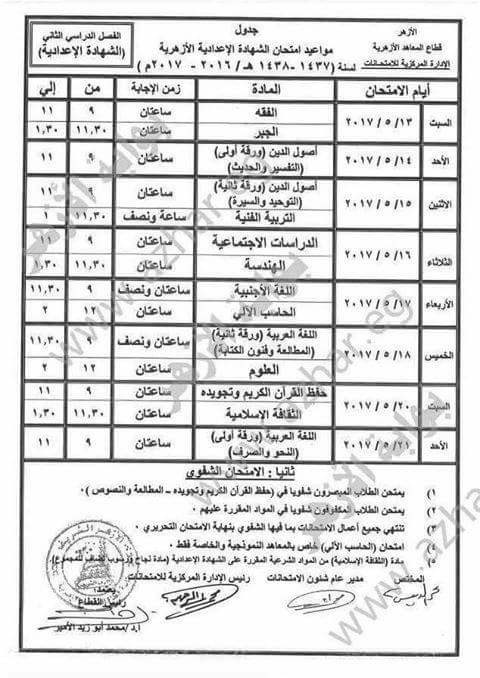 الأزهر
قطاع المعاهد الأزهرية
الإدارة المركزية للامتحانات
جدول
مواعيد امتحان الشهادة الإعدادية الأزهرية
لسنة (١٤٣٧- ١٤٣٨ هـ / ٢٠١٦ - ٢٠١٧ م)
الفصل الدراسي الثاني
(الشهادة الإعدادية)
أيام الامتحان المادة زمن الإجابة من إلي
السبت ١٣ / ٥ / ٢٠١٧ الفقه ساعتان ٩ ١١
الجبر ساعتان ١١,٣٠ ١,٣٠
الأحد ١٤ / ٥ / ٢٠١٧ أصول الدين (ورقة أولى) ساعتان ٩ ١١
(التفسير والحديث)
الاثنين ١٥ / ٥ / ٢٠١٧ أصول الدين (ورقة ثانية) ساعتان ٩ ١١
(التوحيد والسيرة)
التربية الفنية ساعة ونصف ١١,٣٠ ١
الثلاثاء ١٦ / ٥ / ٢٠١٧ الدراسات الاجتماعية ساعتان ٩ ١١
الهندسة ساعتان ١١,٣٠ ١,٣٠
الأربعاء ١٧ / ٥ / ٢٠١٧ اللغة الأجنبية ساعتان ونصف ٩ ١١,٣٠
الحاسب الآلي ساعتان ١٢ ٢
الخميس ١٨ / ٥ / ٢٠١٧ اللغة العربية (ورقة ثانية) ساعتان ونصف ٩ ١١,٣٠
(المطالعة وفنون الكتابة)
العلوم ساعتان ١٢ ٢
السبت ٢٠ / ٥ / ٢٠١٧ حفظ القرآن الكريم وتجويده ساعتان ٩ ١١
الثقافة الإسلامية ساعتان ١١,٣٠ ١,٣٠
الأحد ٢١ / ٥ / ٢٠١٧ اللغة العربية (ورقة أولى) ساعتان ٩ ١١
(النحو والصرف)
ثانيا : الامتحان الشفوي
(١) يمتحن الطلاب المبصرون شفويا في (حفظ القرآن الكريم وتجويده – المطالعة والنصوص )
(٢) يمتحن الطلاب المكفوفون شفويا في المواد المقررة عليهم
(٣) تنتهي جميع أعمال الامتحانات بما فيها الشفوي بنهاية الامتحان التحريري
(٤) امتحان (الحاسب الآلي) خاص بالمعاهد النموذجية والخاصة فقط
(٥) مادة (الثقافة الإسلامية) من المواد الشرعية المقررة على الشهادة الإعدادية (مادة نجاح ورسوب تضاف للمجموع)
المختص مدير عام شئون الامتحانات رئيس الإدارة المركزية للامتحانات
يعتمد،
رئيس القطاع
أ.د/محمد أبو زيد الأمير
بوابة الأزهر
www.azhar.eg